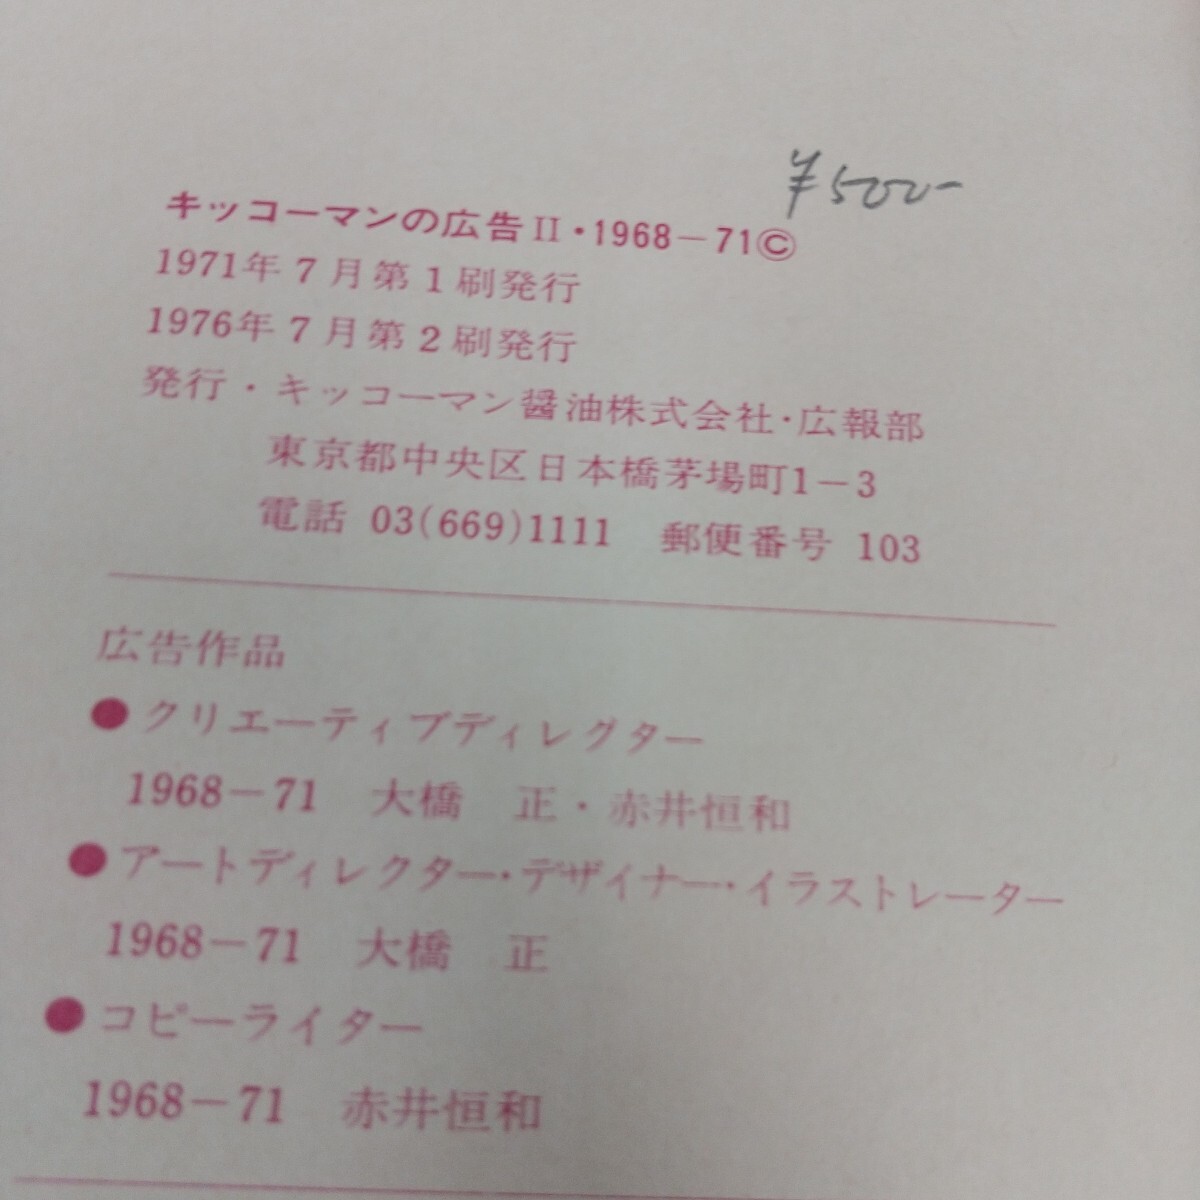 ¥500-
キッコーマンの広告II・1968－71©
1971年7月第1刷発行
1976年7月第2刷発行
発行・キッコーマン醤油株式会社・広報部
東京都中央区日本橋茅場町1－3
電話 03(669)1111 郵便番号 103
広告作品
●クリエーティブディレクター
1968－71 大橋 正・赤井恒和
●アートディレクター・デザイナー・イラストレーター
1968－71 大橋 正
●コピーライター
1968－71 赤井恒和